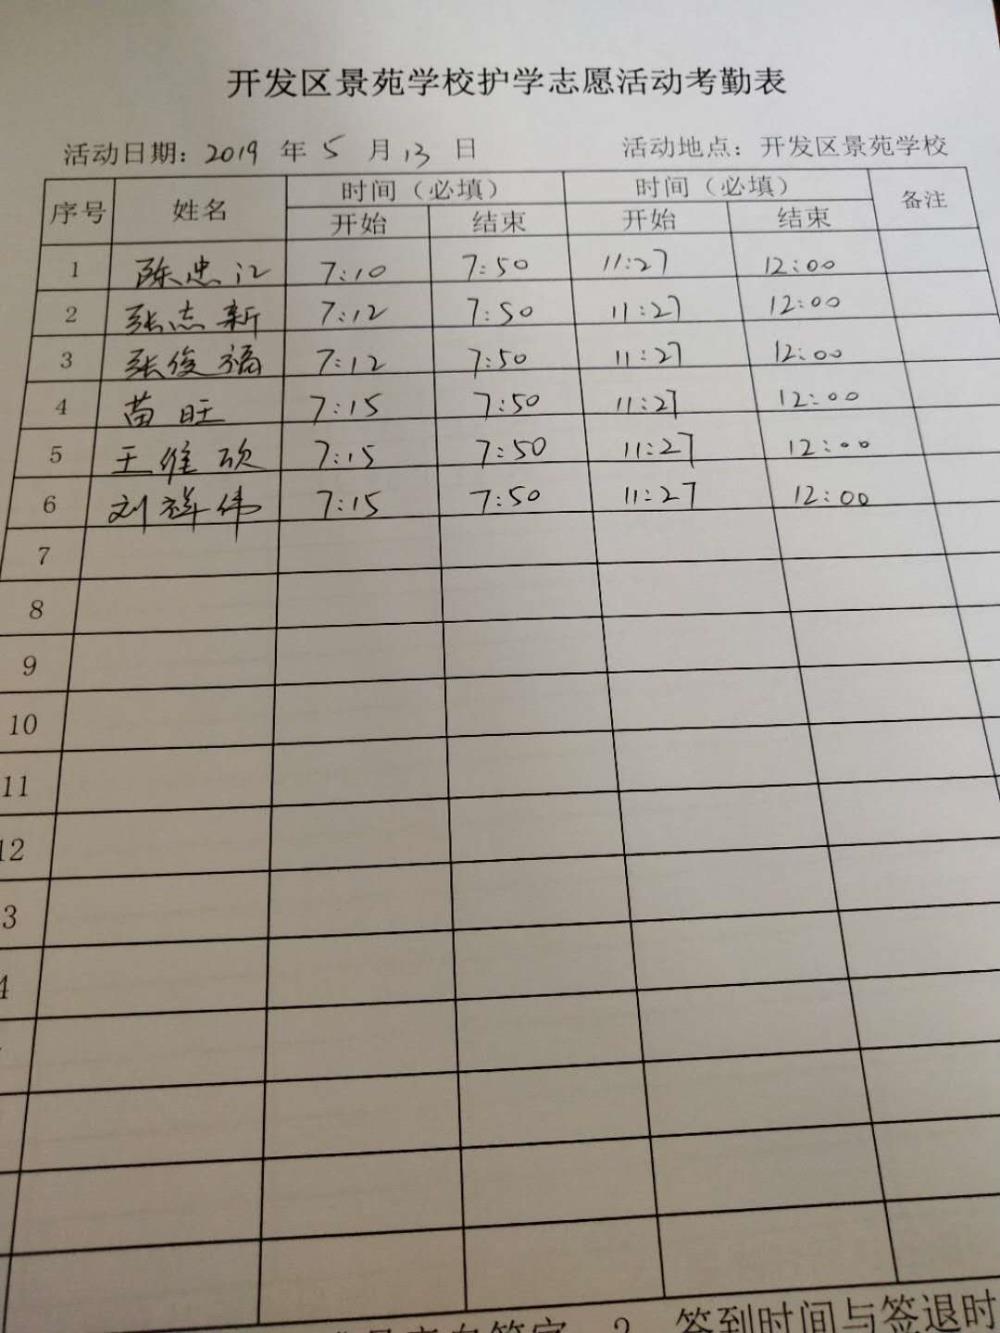 开发区景苑学校护学志愿活动考勤表
活动日期：2019 年 5 月 13 日 活动地点：开发区景苑学校
序号 姓名 时间（必填） 时间（必填） 备注
开始 结束 开始 结束
1 陈忠江 7:10 7:50 11:27 12:00
2 张志新 7:12 7:50 11:27 12:00
3 张俊福 7:12 7:50 11:27 12:00
4 苗旺 7:15 7:50 11:27 12:00
5 王维欣 7:15 7:50 11:27 12:00
6 刘祥伟 7:15 7:50 11:27 12:00
7
8
9
10
11
12
3
4
2、签到时间与签退时